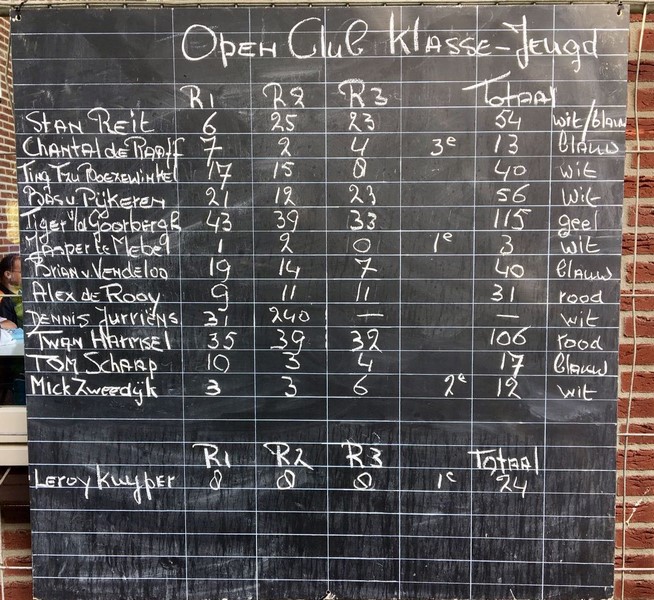 Open Club Klasse-Jeugd
R1 R2 R3 Totaal
Stan Reit 6 25 23 54 wit/blauw
Chantal de Raaff 7 2 4 3e 13 blauw
Ting Tzu 17 15 8 40 wit
Bas v Pijkeren 21 12 23 56 wit
Tiger v/d Goorbergh 43 39 33 115 geel
1 2 0 1e 3 wit
Brian v Vendeloo 19 14 7 40 blauw
Alex de Rooy 9 11 11 31 rood
Dennis Jurriëns 31 240 — — wit
Twan Hamsel 35 39 32 106 rood
Tom Schaap 10 3 4 17 blauw
Mick Zweedijk 3 3 6 2e 12 wit
R1 R2 R3 Totaal
Leroy Kuyper 8 8 8 1e 24